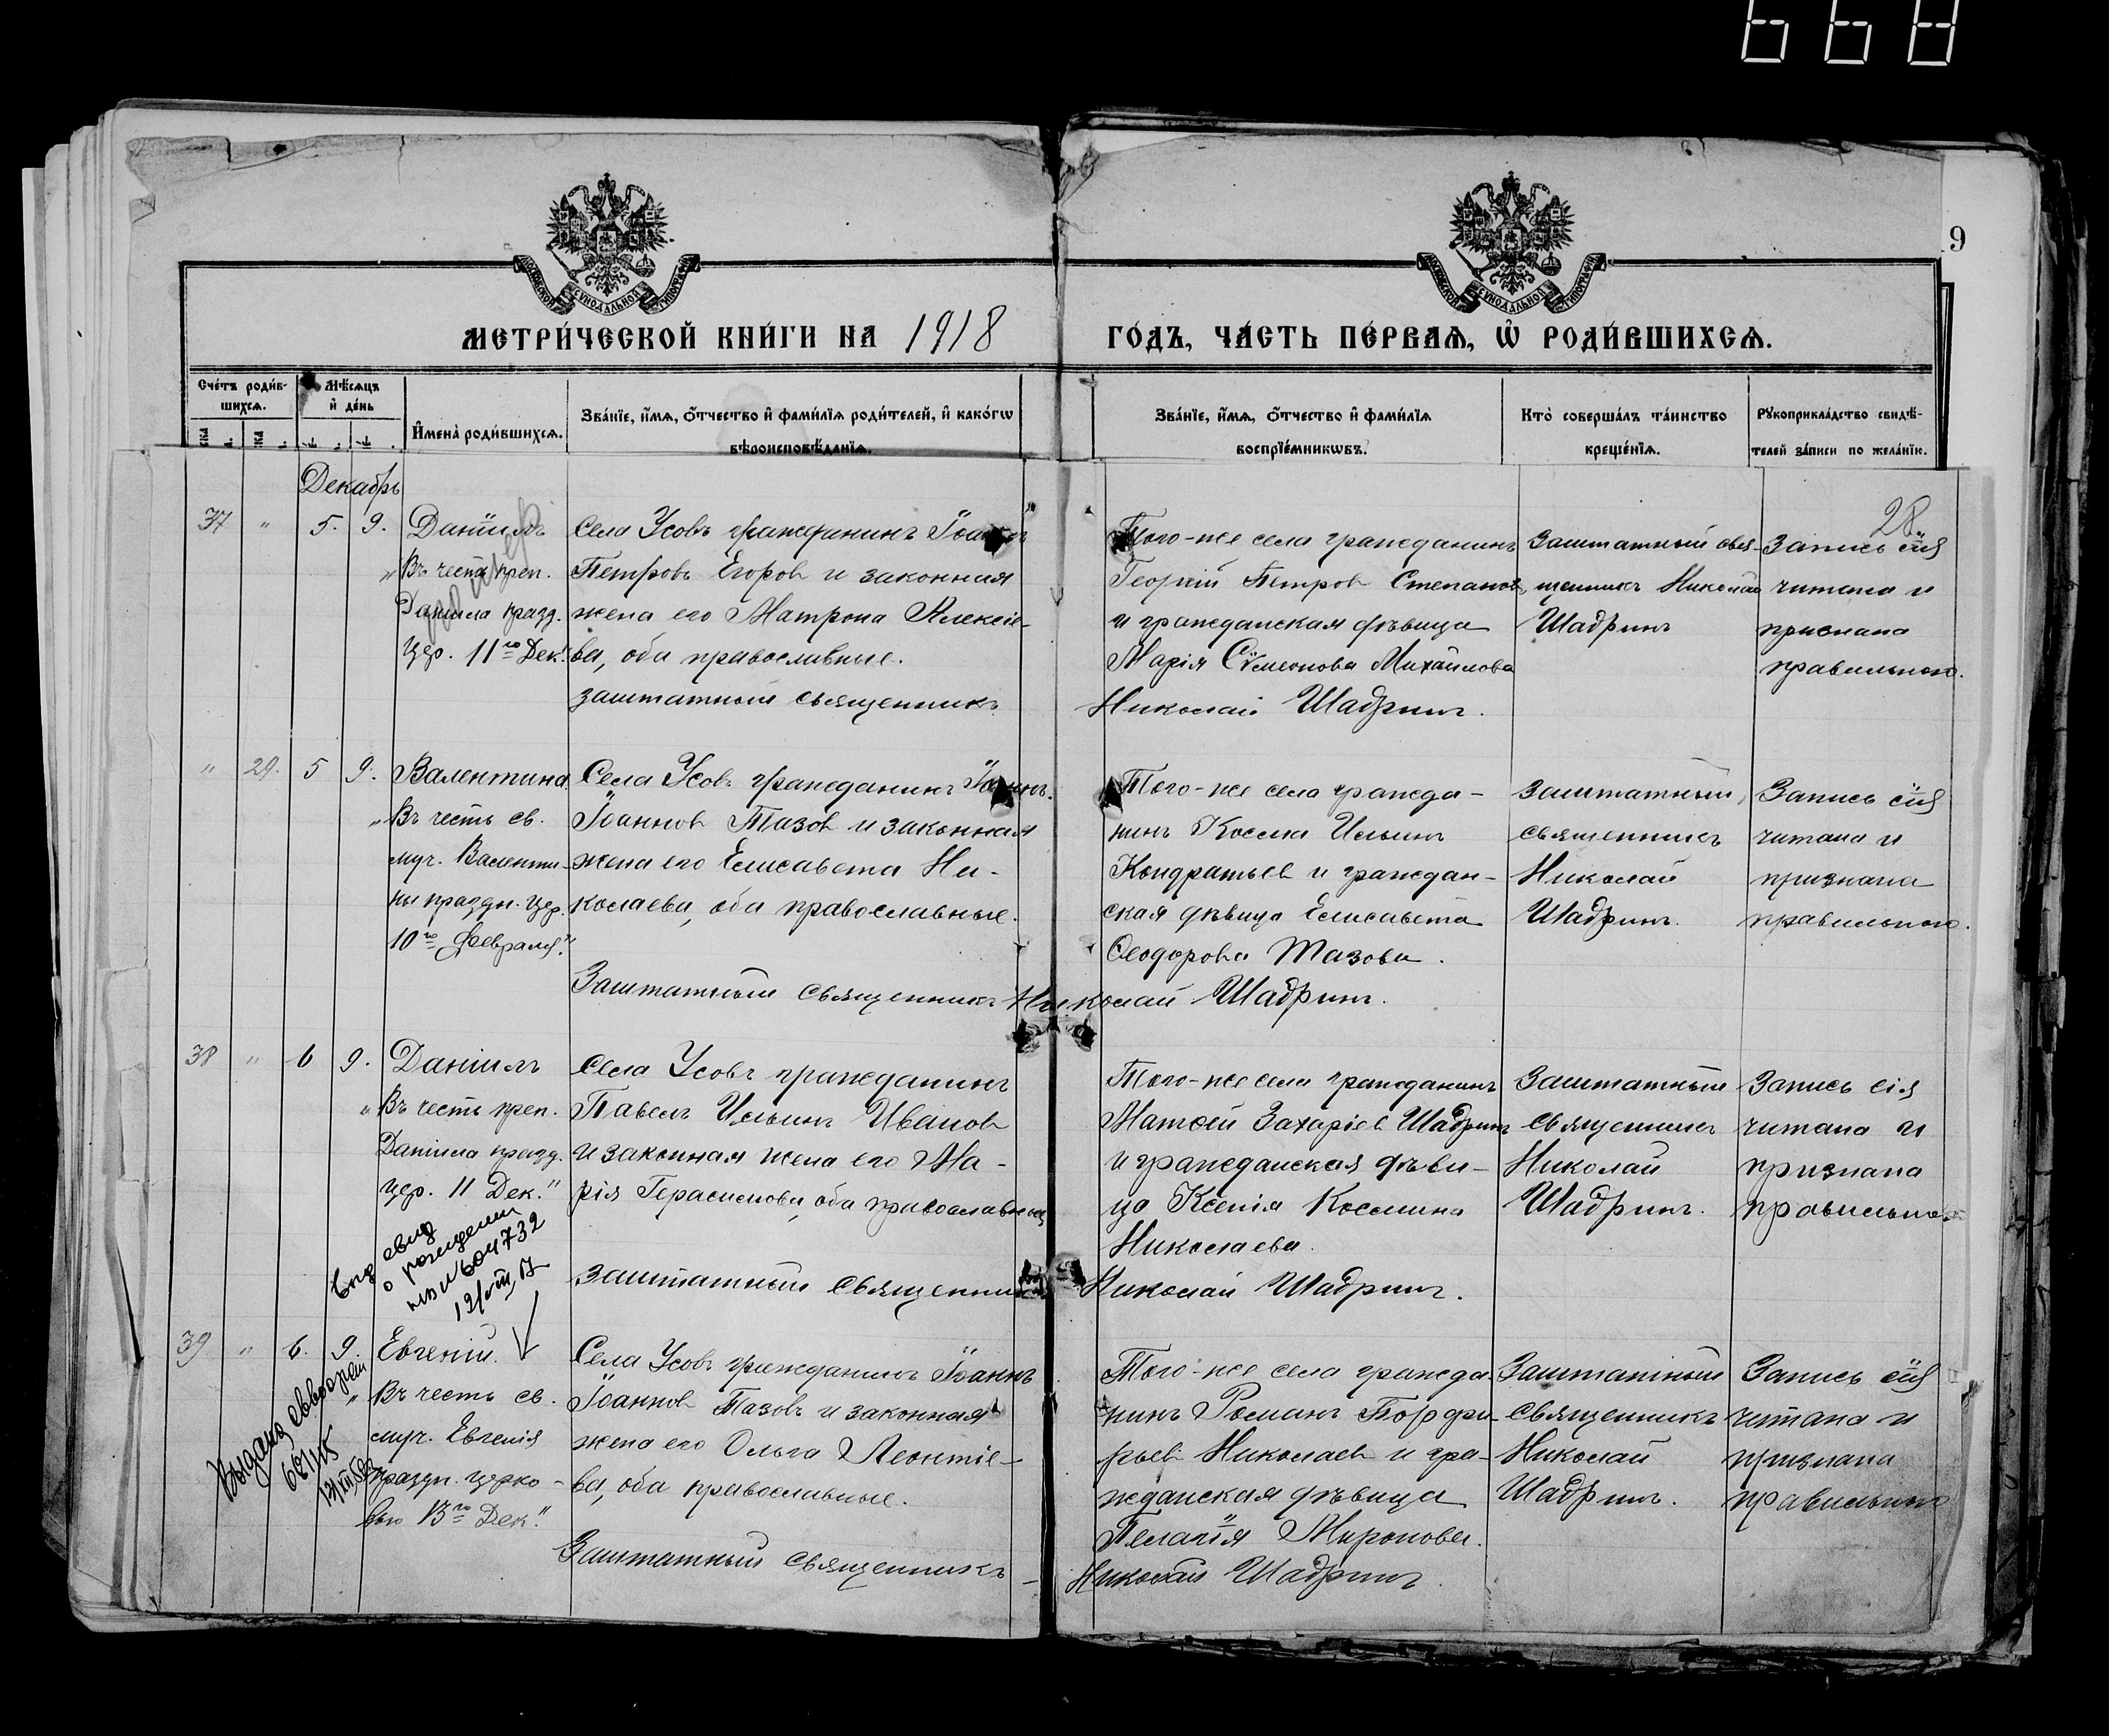 668
9
МОСКОВСКОЙ СУНОДАЛЬНОЙ ТИПОГРАФІИ
МОСКОВСКОЙ СУНОДАЛЬНОЙ ТИПОГРАФІИ
МЕТРИ́ЧЕСКОЙ КНИ́ГИ НА 1918
ГО́ДЪ, ЧА́СТЬ ПЕ́РВАѦ, Ѽ РОДИ́ВШИХСѦ.
Сче́тъ роди́в-
шихсѧ.
Мѣ́сѧцъ
и҆ де́нь
И҆мена̀ роди́вшихсѧ.
Зва́нїе, и҆́мѧ, ѻ҆́тчество и҆ фами́лїѧ роди́телей, и҆ како́гѡ
вѣроисповѣ́данїѧ.
Зва́нїе, и҆́мѧ, ѻ҆́тчество и҆ фами́лїѧ
воспрїе́мникѡвъ.
Кто̀ соверша́лъ та́инство
креще́нїѧ.
Рꙋкоприкла́дство свидѣ́-
телей за́писи по жела́нїю.
Декабрь
28
37 " 5. 9. Даніилъ
„Въ честь преп.
Даниила празд.
Цер. 11го Дек."
Села Усовъ гражданинъ Іоаннъ
Петровъ Егоров и законная
жена его Матрона Алексіе-
ва, оба православные.
заштатный священникъ
Того-же села гражданинъ
Георгій Петров Степанов
и гражданская дѣвица
Марія Сѵмеонова Михайлова
Николай Шадринъ.
Заштатный свя-
щенникъ Николай
Шадринъ
Запись сія
читана и
признана
правильною.
" 29. 5 9. Валентина.
„Въ честь св.
муч. Валенти-
ны праздн. цер.
10го Февраля."
Села Усовъ гражданинъ Іоаннъ.
Іоаннов Тазов и законная
жена его Елисавета Ни-
колаева, оба православные.
Заштатный священникъ Николай Шадринъ.
Того-же села гражда-
нинъ Косма Ильинъ
Кондратьев и граждан-
ская дѣвица Елисавета
Ѳеодорова Тазова.
Заштатный
священникъ
Николай
Шадринъ.
Запись сія
читана и
признана
правильною.
38 " 6 9. Даніилъ
„Въ честь преп.
Даніила празд.
цер. 11 Дек."
Села Усовъ гражданинъ
Павелъ Ильинъ Иванов
и законная жена его Ма-
рія Герасимова, оба православные
заштатный священникъ
Того-же села гражданинъ
Матѳей Захаріев Шадринъ
и гражданская дѣви-
ца Ксенія Космина
Николаева.
Николай Шадринъ.
Заштатный
священникъ
Николай
Шадринъ.
Запись сія
читана и
признана
правильною.
выд свид
о рождении
604732
39 " 6. 9. Евгеній.
„Въ честь св.
муч. Евгенія
праздн. церко-
вью 13го Дек."
Выдана
Села Усовъ гражданинъ Іоаннъ
Іоаннов Тазовъ и законная
жена его Ольга Леонтіе-
ва, оба православные.
Заштатный священникъ -
Того-же села гражда-
нинъ Романъ Порфи-
рьев Николаев и гра-
жданская дѣвица
Пелагія Миронова.
Николай Шадринъ
Заштатный
священникъ
Николай
Шадринъ.
Запись сія
читана и
признана
правильною